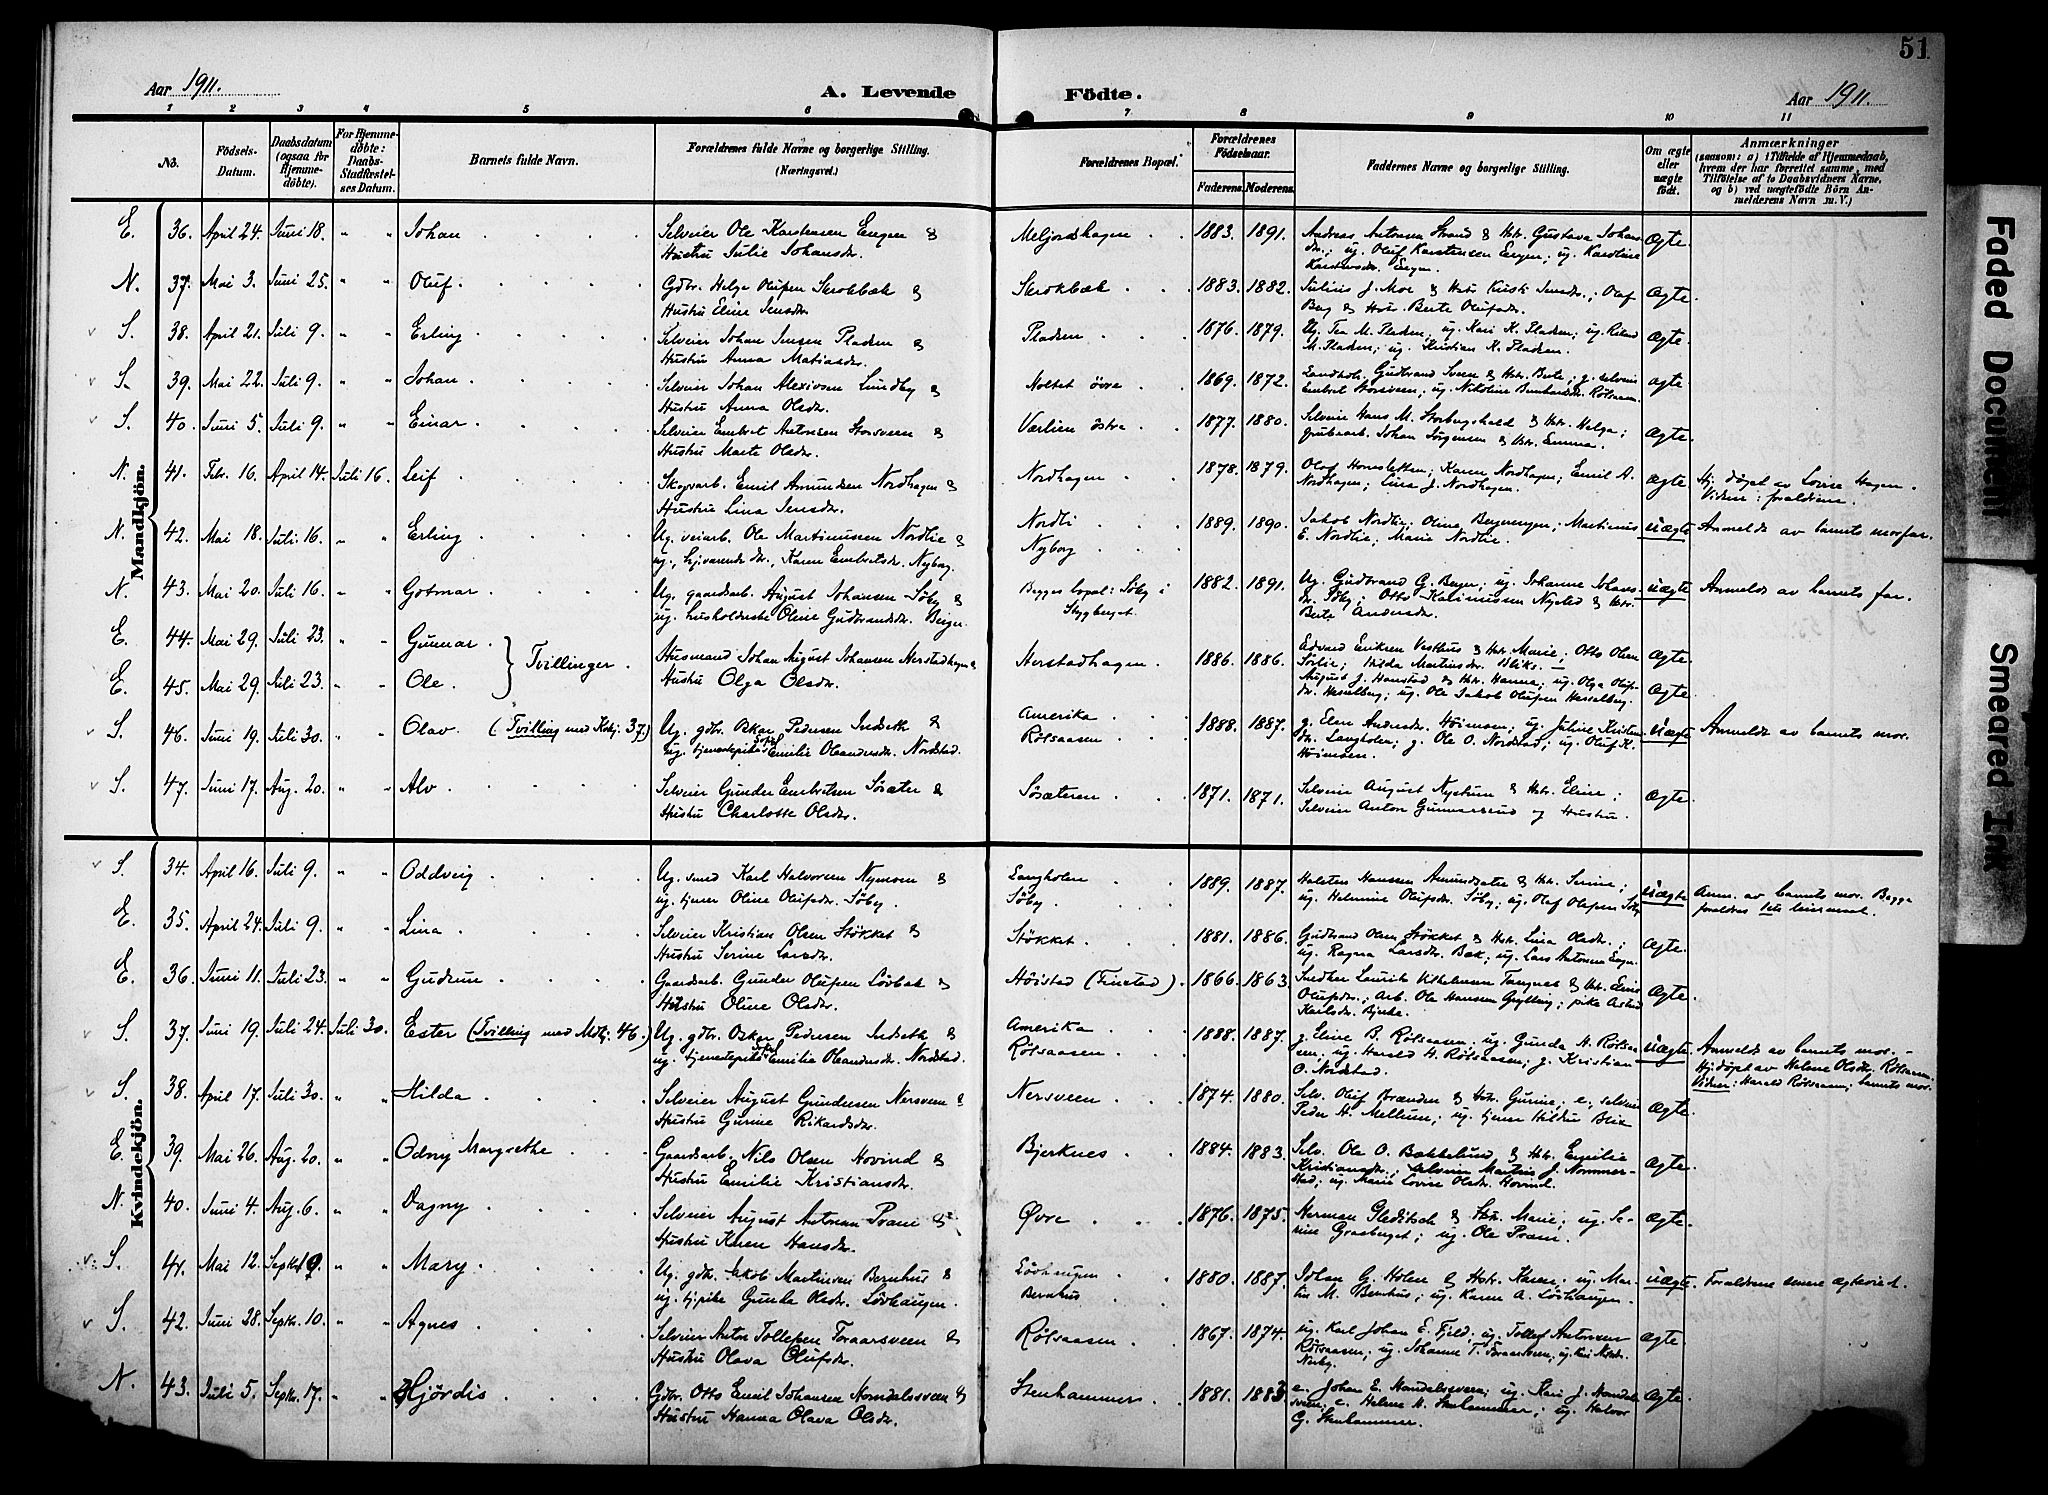 51
Aar 1911.
A. Levende Födte.
Aar 1911.
1 2 3 4 5 6 7 8 9 10 11
No.
Födsels-Datum.
Daabsdatum (ogsaa for Hjemmedöbte).
For Hjemmedöbte: Daabs-Stadfæstelses Datum.
Barnets fulde Navn.
Forældrenes fulde Navne og borgerlige Stilling. (Næringsvei.)
Forældrenes Bopæl.
Forældrenes Födselsaar.
Faderens. Moderens.
Faddernes Navne og borgerlige Stilling.
Om ægte eller uægte födt.
Anmærkninger
(saasom: a) i Tilfælde af Hjemmedaab, hvem der har forrettet samme, med Tilföielse af to Daabsvidners Navne, og b) ved uægtefödte Börn Anmelderens Navn m. V.)
Mandkjön.
E. 36. April 24. Juni 18. " " Johan
Selveier Ole Karstensen Engen &
Hustru Julie Johansdr.
Meljordshagen 1883. 1891.
Andreas Antonsen Strand & Hstr. Gustava Johans
dr.; ug. Oluf Karstensen Engen; ug. Karoline
Karstensdr. Engen.
Ægte.
N. 37. Mai 3. Juni 25. " " Oluf.
Gdbr. Helge Olufsen Skrokbæk &
Hustru Eline Jensdr.
Skrokbæk 1883. 1882.
Julius J. Moe & Hstr. Kristi Jensdr.; Olaf
Berg & Hstr. Berte Olufsdr.
Ægte.
S. 38. April 21. Juli 9. " " Erling
Selveier Johan Jensen Pladsen &
Hustru Anna Matiasdr.
Pladsen 1876. 1879.
Ug. Tea M. Pladsen; ug. Kari K. Pladsen; ug.
M. Pladsen; ug. Kristian K. Pladsen.
Ægte.
S. 39. Mai 22. Juli 9. " " Johan
Selveier Johan Alexisen Lundby &
Hustru Anna Olsdr.
Moltet övre 1869. 1872.
Landhdl. Gudbrand Sveen & Hstr. Berte; g. selveier
Embret Storsveen; ug. Nikoline Bernhardsdr. Rölsaasen.
Ægte
S. 40. Juni 5. Juli 9. " " Einar
Selveier Embret Antonsen Storsveen &
Hustru Marte Olsdr.
Værlien östre 1877. 1880.
Selveier Hans M. Storbergshald & Hstr. Helga;
grubearb. Johan Jörgensen & Hstr. Emma.
Ægte.
N. 41. Febr. 16. April 14. Juli 16. Leif
Skogvarb. Emil Amundsen Nordhagen &
Hustru Lina Jensdr.
Nordhagen 1878. 1879.
Olaf Hornsletten; Karen Nordhagen; Emil A.
Nordhagen; Lina J. Nordhagen.
Ægte
Hj. döpt av Lovise Hagen.
Vidner: forældrene.
N. 42. Mai 18. Juli 16. " " Erling
Ug. veiarb. Ole Martinussen Nordlie &
ug. hjvarende dr. Karen Embretsdr. Nyborg.
Nordli
Nyborg
1889. 1890.
Jakob Nordlie; Oline Bergengen; Martinus
E. Nordlie; Marie Nordlie.
Uægte
Anmeldt av barnets morfar.
N. 43. Mai 20. Juli 16. " " Gotmar
Ug. gaardarb. August Johansen Söby &
ug. husholderske Oline Gudbrandsdr. Berger
Begges bopæl: Söby i
Styggberget.
1882. 1891.
Ug. Gudbrand G. Berger; ug. Johanne Johans-
dr. Söby; Otto Karinussen Nysted & Hstr.
Berte Andersdr.
Uægte
Anmeldt av barnets far.
E. 44. Mai 29. Juli 23. " " Gunnar
E. 45. Mai 29. Juli 23. " " Ole.
} Tvillinger
Husmand Johan August Johansen Herstadhagen &
Hustru Olga Olsdr.
Herstadhagen. 1886. 1886.
Edvard Eriksen Vesthus & Hstr. Marie; Otto Olsen
Sörlie; Hilda Martinsdr. Bliks.
August J. Hanstad & Hstr. Hanna; ug. Olga Olufs-
dr. Hesselberg; ug. Ole Jakob Olufsen Hesselberg.
Ægte.
Ægte.
S. 46. Juni 19. Juli 30. " " Olav (Tvilling med Kvkj. 37.)
Ug. gdbr. Oskar Pedersen Indseth &
ug. tjenestepike Sofie Emilie Oleandersdr. Nordstad.
Amerika
Rölsaasen
1888. 1887.
g. Eline Andersdr. Höimoen; ug. Juline Kristens
dr. Langholen; g. Ole O. Nordstad; ug. Oluf K.
Höimoen.
Uægte
Anmeldt av barnets mor.
S. 47. Juni 17. Aug. 20. " " Alv
Selveier Gunder Embretsen Söræter &
Hustru Charlotte Olsdr.
Söræteren 1871. 1871.
Selveier August Nystuen & Hstr. Eline;
Selveier Anton Gunnarsrud og Hustru.
Ægte.
Kvindekjön.
S. 34. April 16. Juli 9. " " Oddveig
Ug. smed Karl Halvorsen Nymoen &
ug. tjener Oline Olufsdr. Söby.
Langholen
Söby
1889. 1887.
Halsten Hansen Amundsæter & Hstr. Serine;
ug. Helmine Olufsdr. Söby; ug. Olaf Olufsen Söby
Uægte
Anm. av barnets mor. Begge
forældres 1ste leiermaal.
E. 35. April 24. Juli 9. " " Lina
Selveier Kristian Olsen Stökket &
Hustru Serine Larsdr.
Stökket 1881. 1886.
Gudbrand Olsen Stökket & Hstr. Lina Olsdr.;
ug. Ragna Larsdr. Bæk; ug. Lars Antonsen Engen.
Ægte.
E. 36. Juni 11. Juli 23. " " Gudrun
Gaardarb. Gunder Olufsen Lövbak &
Hustru Oline Olsdr.
Höistad (Finstad) 1866. 1863.
Snedker Laurits Vilhelmsen Tangnes & Hstr. Eline
Olufsdr.; Arb. Ole Hansen Grytting; pike Astrid
Karlsdr. Bjerke.
Ægte.
S. 37. Juni 19. Juli 24. Juli 30. Ester (Tvilling med Mkj. 46.)
Ug. gdbr. Oskar Pedersen Indseth &
ug. tjenestepike Sofie Emilie Oleandersdr. Nordstad.
Amerika
Rölsaasen
1888. 1887.
g. Eline B. Rölsaasen; ug. Gunda H. Rölsaa-
sen; ug. Harald H. Rölsaasen; g. Kristian
O. Nordstad.
Uægte.
Anmeldt av barnets mor.
Hj. döpt av Helene Olsdr. Rölsaasen.
Vidner: Harald Rölsaasen, barnets mor.
S. 38. April 17. Juli 30. " " Hilda
Selveier August Gundersen Nersveen &
Hustru Gurine Rikardsdr.
Nersveen 1874. 1880.
Selv. Oluf Brænden & Hstr. Gurine; e. selveier
Peder H. Mellum; ug. tjener Hildur Blix
Ægte.
E. 39. Mai 26. Aug. 20. " " Odny Margrethe
Gaardarb. Nils Olsen Hovind &
Hustru Emilie Kristiansdr.
Bjerknes 1884. 1883.
Selv. Ole O. Bakkelund & Hstr. Emilie
Kristiansdr.; selveier Martin J. Nommer-
stad; ug. Marie Lovise Olsdr. Hovind.
Ægte.
N. 40. Juni 4. Aug. 6. " " Dagny
Selveier August Antonsen Pram &
Hustru Karen Hansdr.
Övre 1876. 1875.
Herman Gleditsch & Hstr. Marie; ug. Se-
rine Grasberget; ug. Ole Pram.
Ægte.
S. 41. Mai 12. Septr. 9. " " Mary
Ug. gdbr. Jakob Martinsen Bernhus &
ug. tj.pike Gunda Olsdr. Lövhaugen.
Lövhaugen
Bernhus
1880. 1887.
Johan G. Holen & Hstr. Karen; ug. Mar-
tin M. Bernhus; ug. Karen A. Lövhaugen.
Uægte.
Forældrene senere ægteviet.
S. 42. Juni 28. Septr. 10. " " Agnes
Selveier Anton Tollefsen Foraarsveen &
Hustru Olava Olufsdr.
Rölsaasen 1867. 1874.
ug. Karl Johan E. Fjeld; ug. Tollef Antonsen
Rölsaasen; ug. Johanne T. Foraarsveen; ug. Kari
Nerby.
Ægte.
N. 43. Juli 5. Septr. 17. " " Hjördis
Gdbr. Otto Emil Johansen Mondelssveen &
Hustru Hanna Olava Olsdr.
Stenhammer 1881. 1883
e. Johan E. Mandelssveen; ug. Kari J. Mandels
sveen; e. Helene M. Stenhammer; ug. Halvor
G. Stenhammer.
Ægte.
Faded Document
Smeared Ink